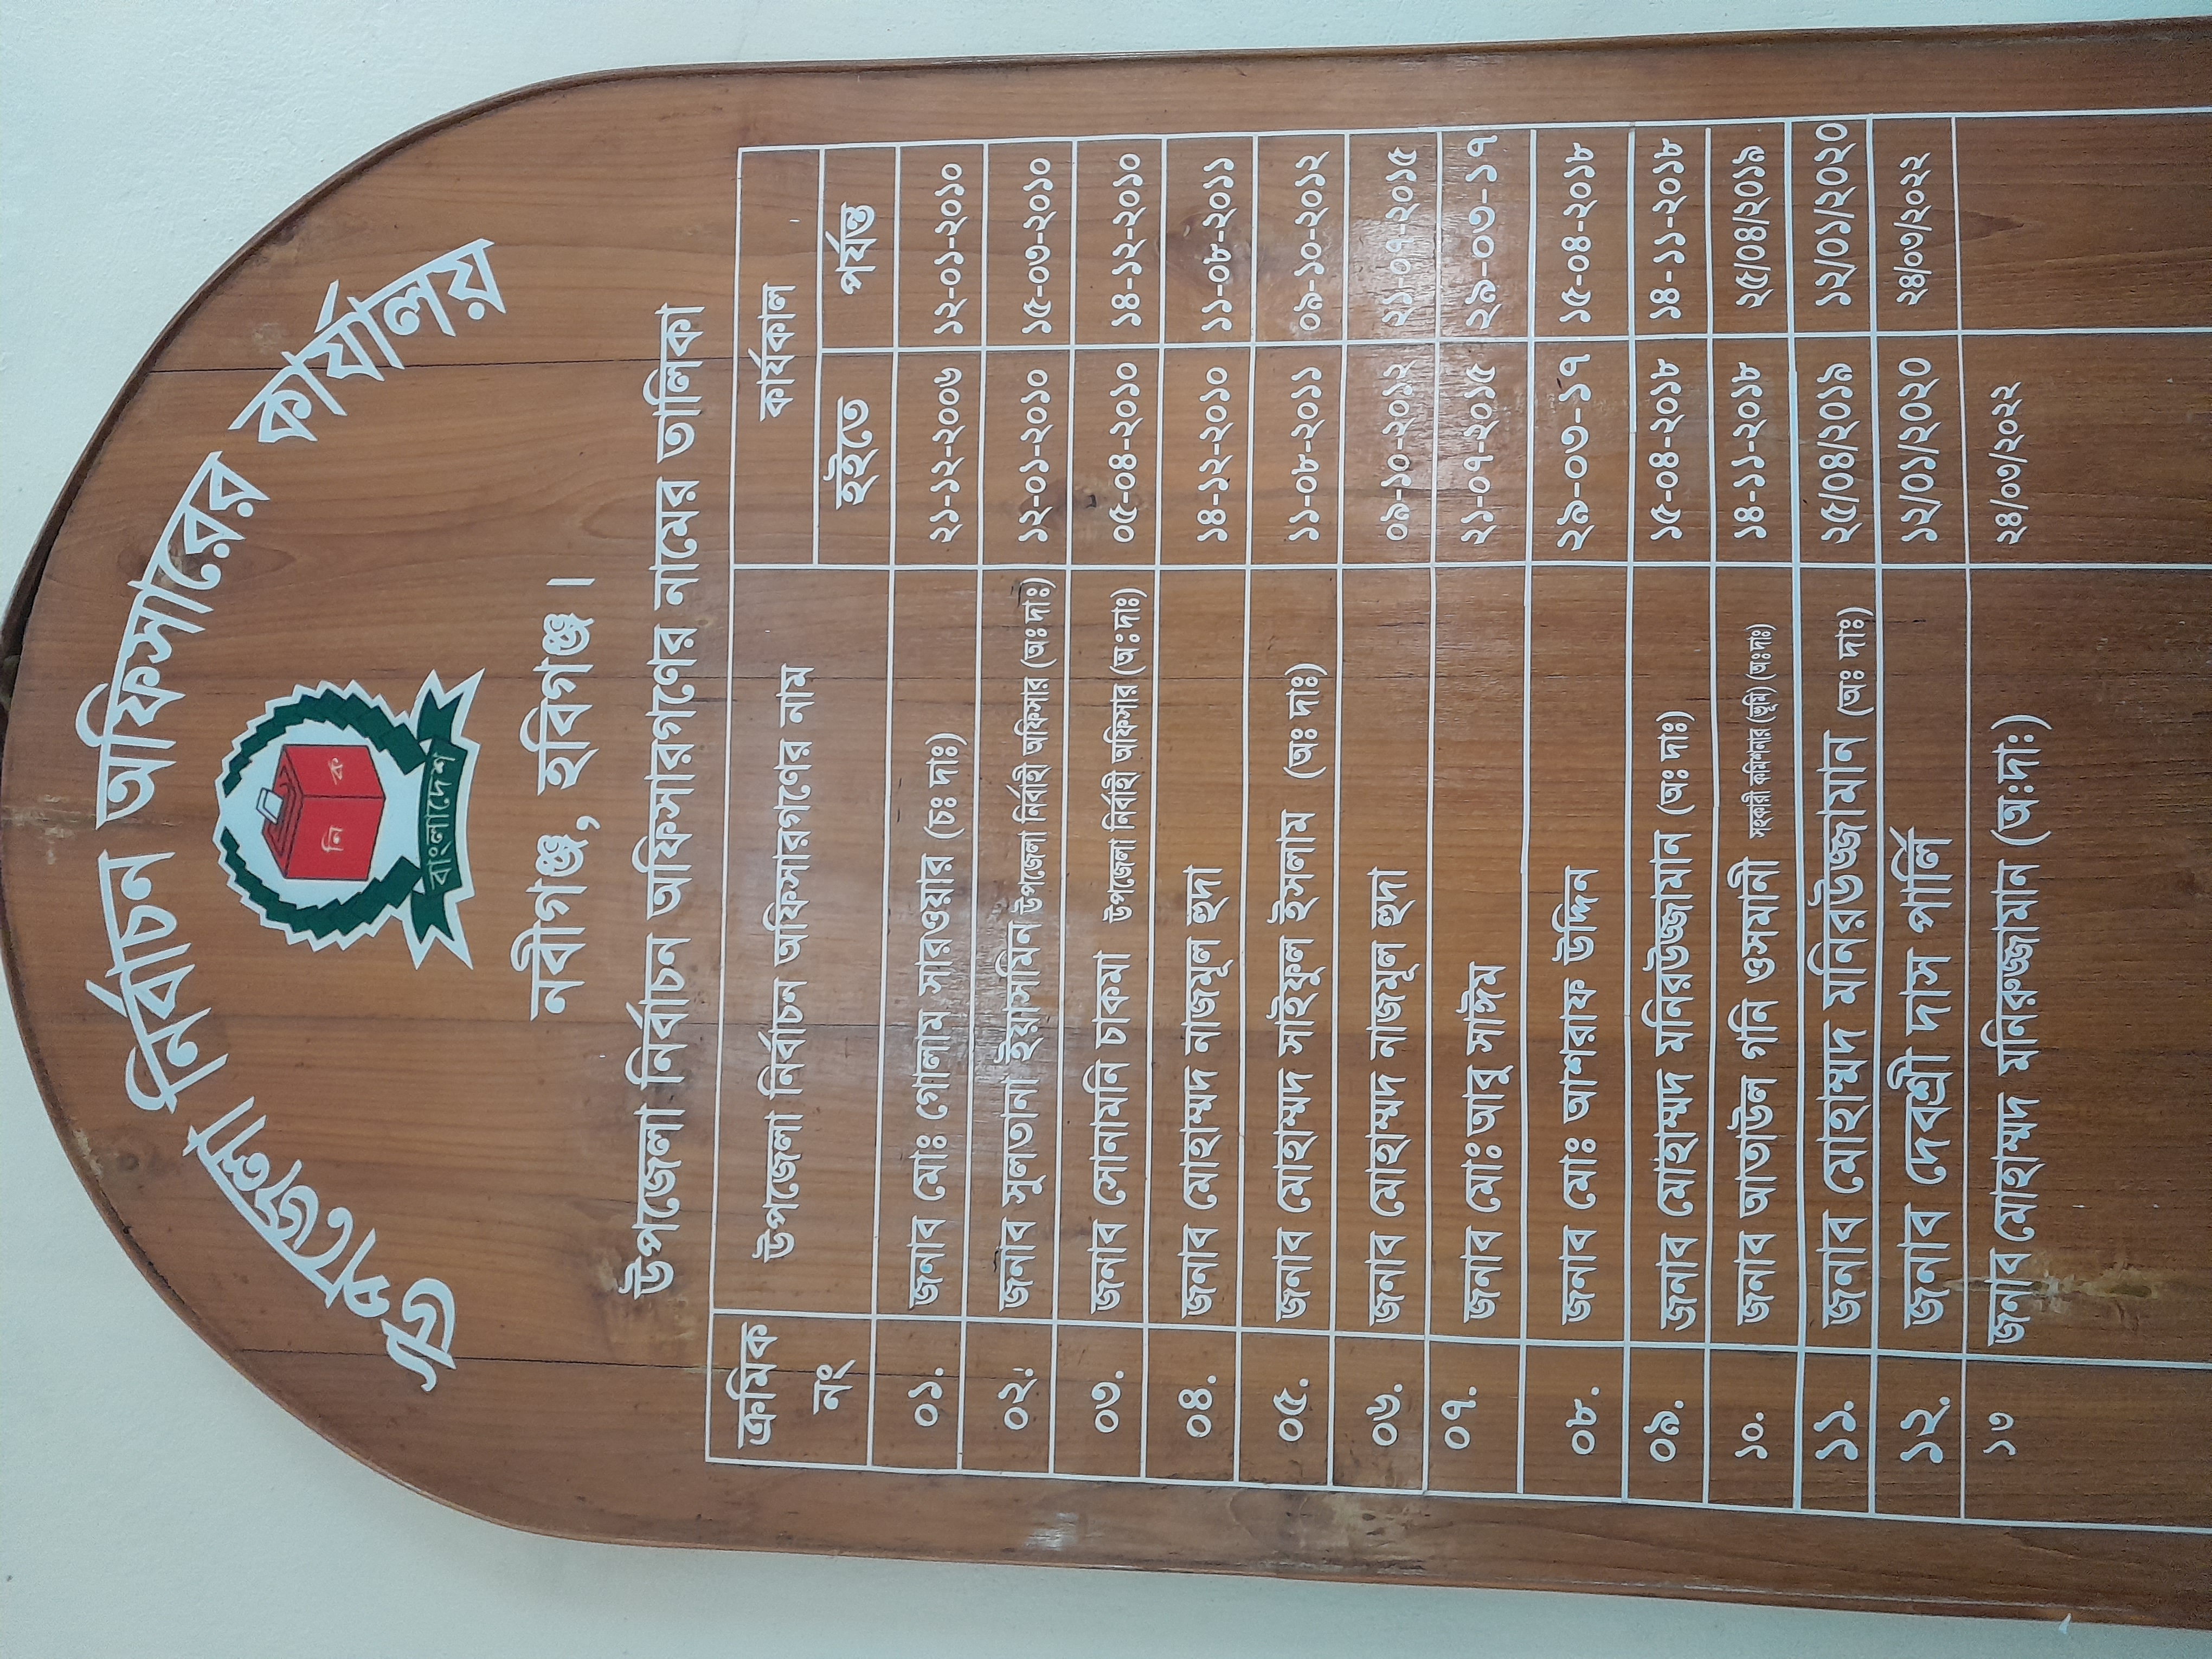 উপজেলা নির্বাচন অফিসারের কার্যালয়
নি ক
বাংলাদেশ
নবীগঞ্জ, হবিগঞ্জ।
উপজেলা নির্বাচন অফিসারগণের নামের তালিকা
ক্রমিক নং উপজেলা নির্বাচন অফিসারগণের নাম কার্যকাল
হইতে পর্যন্ত
০১. জনাব মোঃ গোলাম সারওয়ার (চঃ দাঃ) ২১-১২-২০০৬ ১২-০১-২০১০
০২. জনাব সুলতানা ইয়াসমিন উপজেলা নির্বাহী অফিসার (অঃদাঃ) ১২-০১-২০১০ ১৫-০৩-২০১০
০৩. জনাব সোনামনি চাকমা উপজেলা নির্বাহী অফিসার (অঃদাঃ) ০৫-০৪-২০১০ ১৪-১২-২০১০
০৪. জনাব মোহাম্মদ নাজমুল হুদা ১৪-১২-২০১০ ১১-০৮-২০১১
০৫. জনাব মোহাম্মদ সাইফুল ইসলাম (অঃ দাঃ) ১১-০৮-২০১১ ০৯-১০-২০১২
০৬. জনাব মোহাম্মদ নাজমুল হুদা ০৯-১০-২০১২ ২১-০৭-২০১৫
০৭. জনাব মোঃ আবু সাঈম ২১-০৭-২০১৫ ২৯-০৩-১৭
০৮. জনাব মোঃ আশরাফ উদ্দিন ২৯-০৩-১৭ ১৫-০৪-২০১৮
০৯. জনাব মোহাম্মদ মনিরউজ্জামান (অঃ দাঃ) ১৫-০৪-২০১৮ ১৪-১১-২০১৮
১০. জনাব আতাউল গনি ওসমানী সহকারী কমিশনার (ভূমি) (অঃদাঃ) ১৪-১১-২০১৮ ২৫/০৪/২০১৯
১১. জনাব মোহাম্মদ মনিরউজ্জামান (অঃ দাঃ) ২৫/০৪/২০১৯ ১২/০১/২০২০
১২. জনাব দেবশ্রী দাস পার্লি ১২/০১/২০২০ ২৪/০৩/২০২২
১৩ জনাব মোহাম্মদ মনিরুজ্জামান (অ:দা:) ২৪/০৩/২০২২